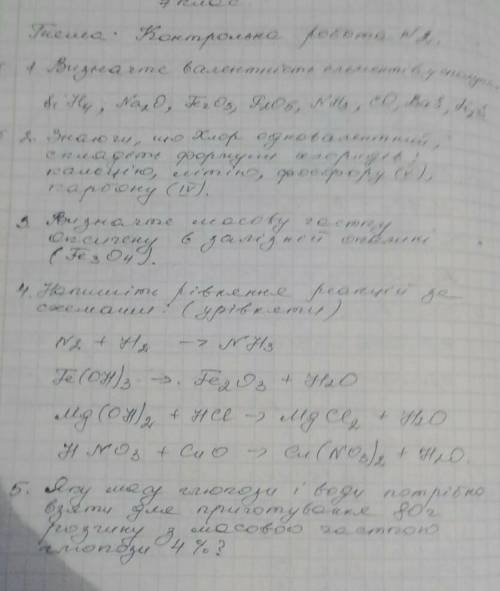 7 клас
Тема: Контрольна робота №2.
1. Визначте валентність елементів у сполуках
SiH4, Na2O, Fe2O3, P2O5, NH3, CO, BaS, K2S
2. Знаючи, що Хлор одновалентний,
складіть формули хлоридів:
кальцію, літію, фосфору (V),
карбону (IV).
3. Визначте масову частку
оксигену в залізній окалині
(Fe3O4).
4. Напишіть рівняння реакцій за
схемами: (урівняти)
N2 + H2 → NH3
Fe(OH)3 → Fe2O3 + H2O
Mg(OH)2 + HCl → MgCl2 + H2O
HNO3 + CuO → Cu(NO3)2 + H2O.
5. Яку масу глюкози і води потрібно
взяти для приготування 80г
розчину з масовою часткою
глюкози 4%?